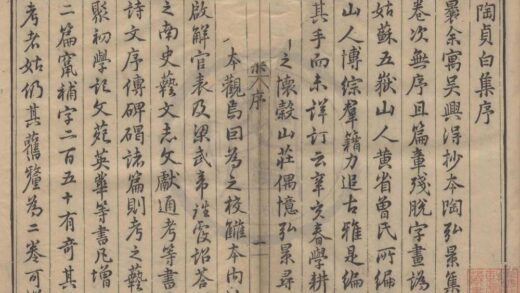 陶貞白集序
曩余寓吳興得抄本陶弘景集
卷次無序且篇章殘脫字畫譌
姑蘇五嶽山人黄省曾氏所編
山人博綜羣籍力追古雅是編
其手而未詳訂云辛亥春學耕
之懷穀山莊偶憶弘景尋
序
一
本觀焉因為之校讎本內
啟解官表及梁武帝詔荅
之南史藝文志文獻通考等書
詩文序傳碑碣誌篇則考之藝
聚初學記文苑英華等書凡增
二篇竄補字二百五十有奇其
考者姑仍其舊釐為二卷可